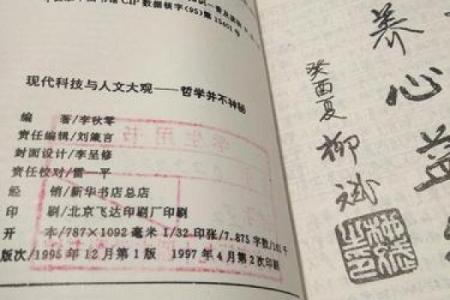 中国版本图书馆CIP数据核字(95)第15401号
现代科技与人文大观——哲学并不神秘
编 著/李秋零
责任编辑/刘箴言
封面设计/李呈修
责任校对/雷一平
经 销/新华书店总店
印 刷/北京飞达印刷厂印刷
开 本/787×1092毫米 1/32 印张/7.875 字数/141千
版次/1995年12月第1版 1997年4月第2次印刷
学生用书
养心益
癸酉夏
柳斌